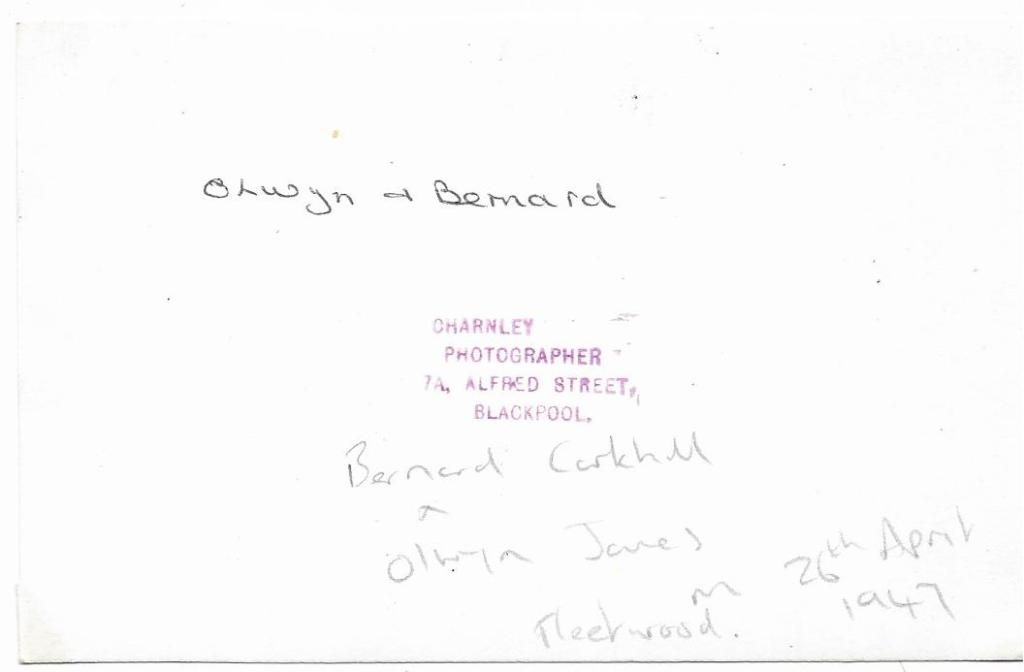 Olwyn + Bernard
CHARNLEY
PHOTOGRAPHER
7A, ALFRED STREET,
BLACKPOOL.
Bernard Corkhill
Olwyn Jones
26th April
1947
m
Fleetwood.